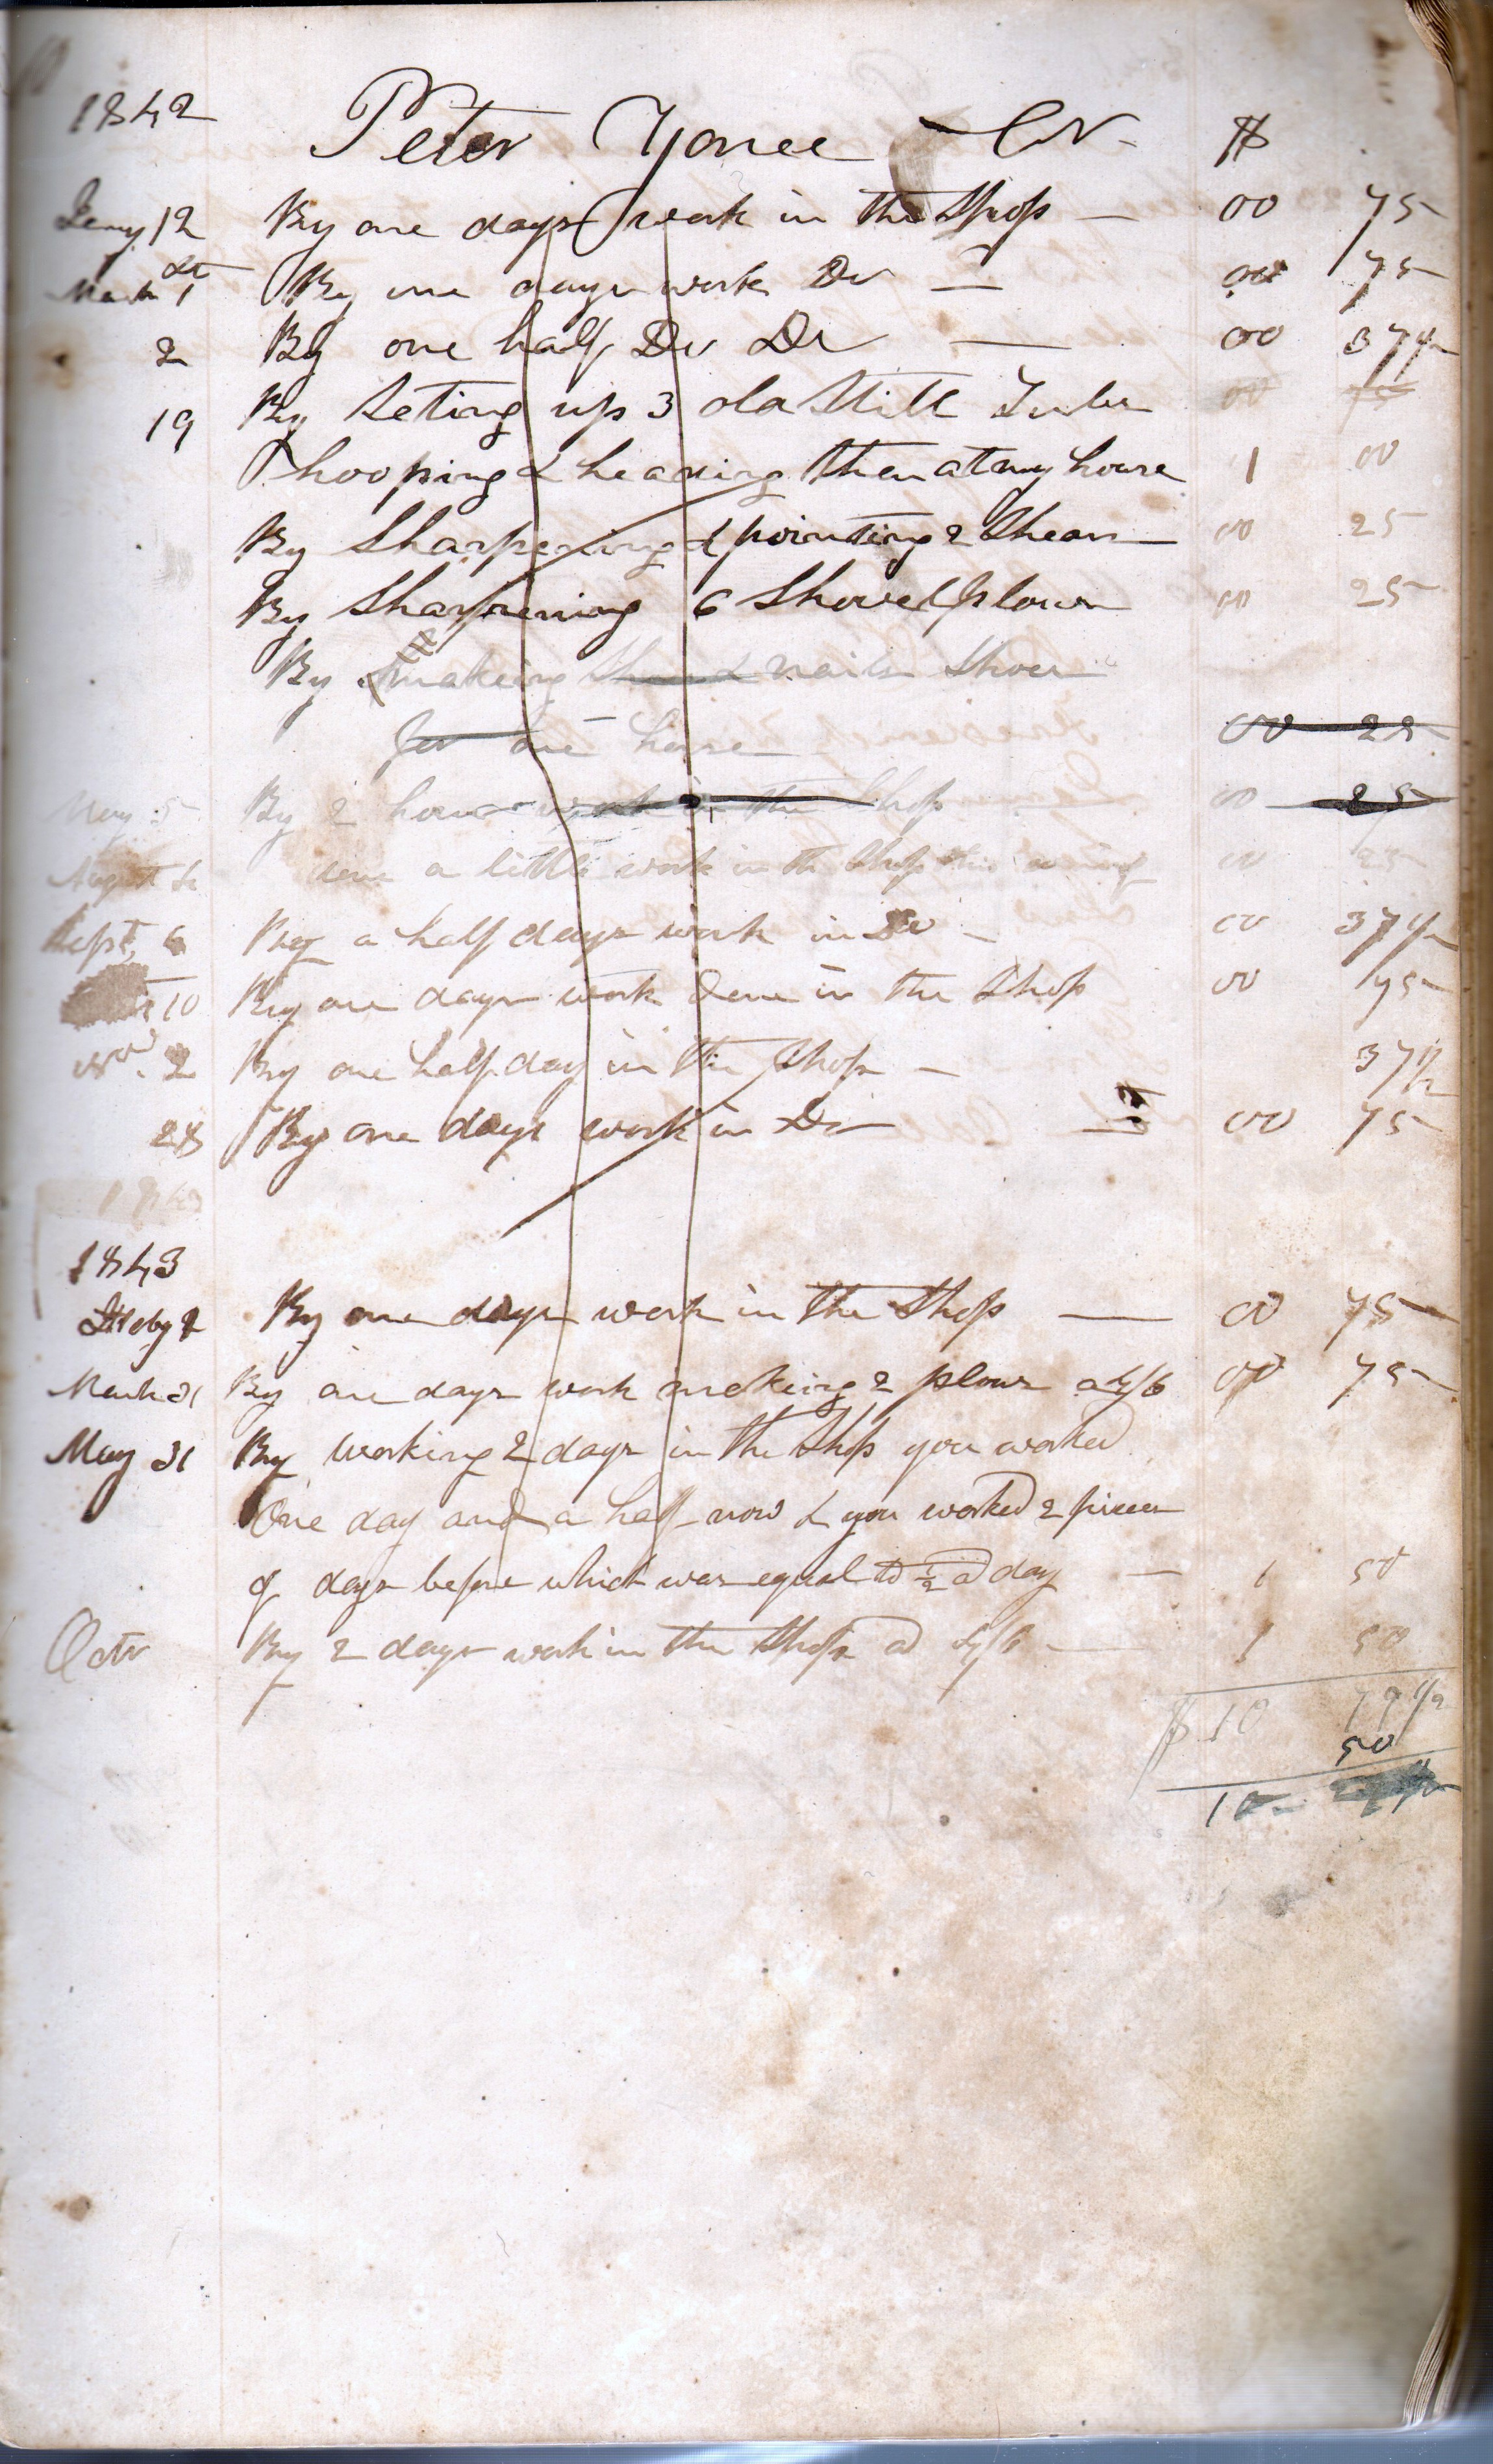 1842 Peter Yonce Cr. $
Jany 12 By one days work in the Shop — 00 75
March 1st By one days work Do — 00 75
2 By one half Do Do — 00 37½
19 By Seting up 3 old Still Tubs 00
& hooping & heading them at my house 1 00
By Sharpening & pointing 2 Shears — 00 25
By Sharpening 6 Shovel plows 00 25
By making nails Shoes
for one horse 00 25
May 5 By 2 hours work in the Shop 00 25
August 4 done a little work in the Shop this 00 25
Sept, 6 By a half days work in Do — 00 37½
10 By one days work done in the Shop 00 75
2 By one half day in the Shop — 37½
28 By one days work in Do — 00 75
1843
1843
By one days work in the Shop — 00 75
March 31 By one days work making 2 plows a 4/6 00 75
May 31 By working 2 days in the Shop you worked
One day and a half now & you worked 2 pieces
of days before which was equal to ½ a day — 1 50
Octr By 2 days work in the Shop a 4/6 — 1 50
$10
50
10